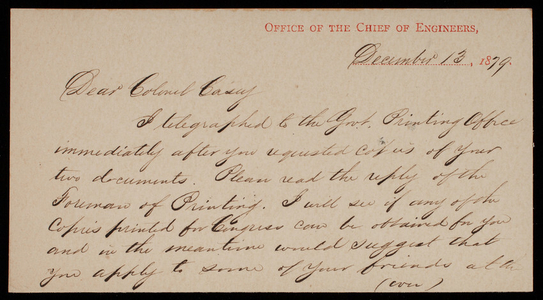 OFFICE OF THE CHIEF OF ENGINEERS,
December 13, 1879.
Dear Colonel Casey
I telegraphed to the Govt. Printing Office
immediately after you requested copies of your
two documents. Please read the reply of the
Foreman of Printing. I will see if any of the
Copies printed for Congress can be obtained for you
and in the meantime would suggest that
you apply to some of your friends at the
(over)